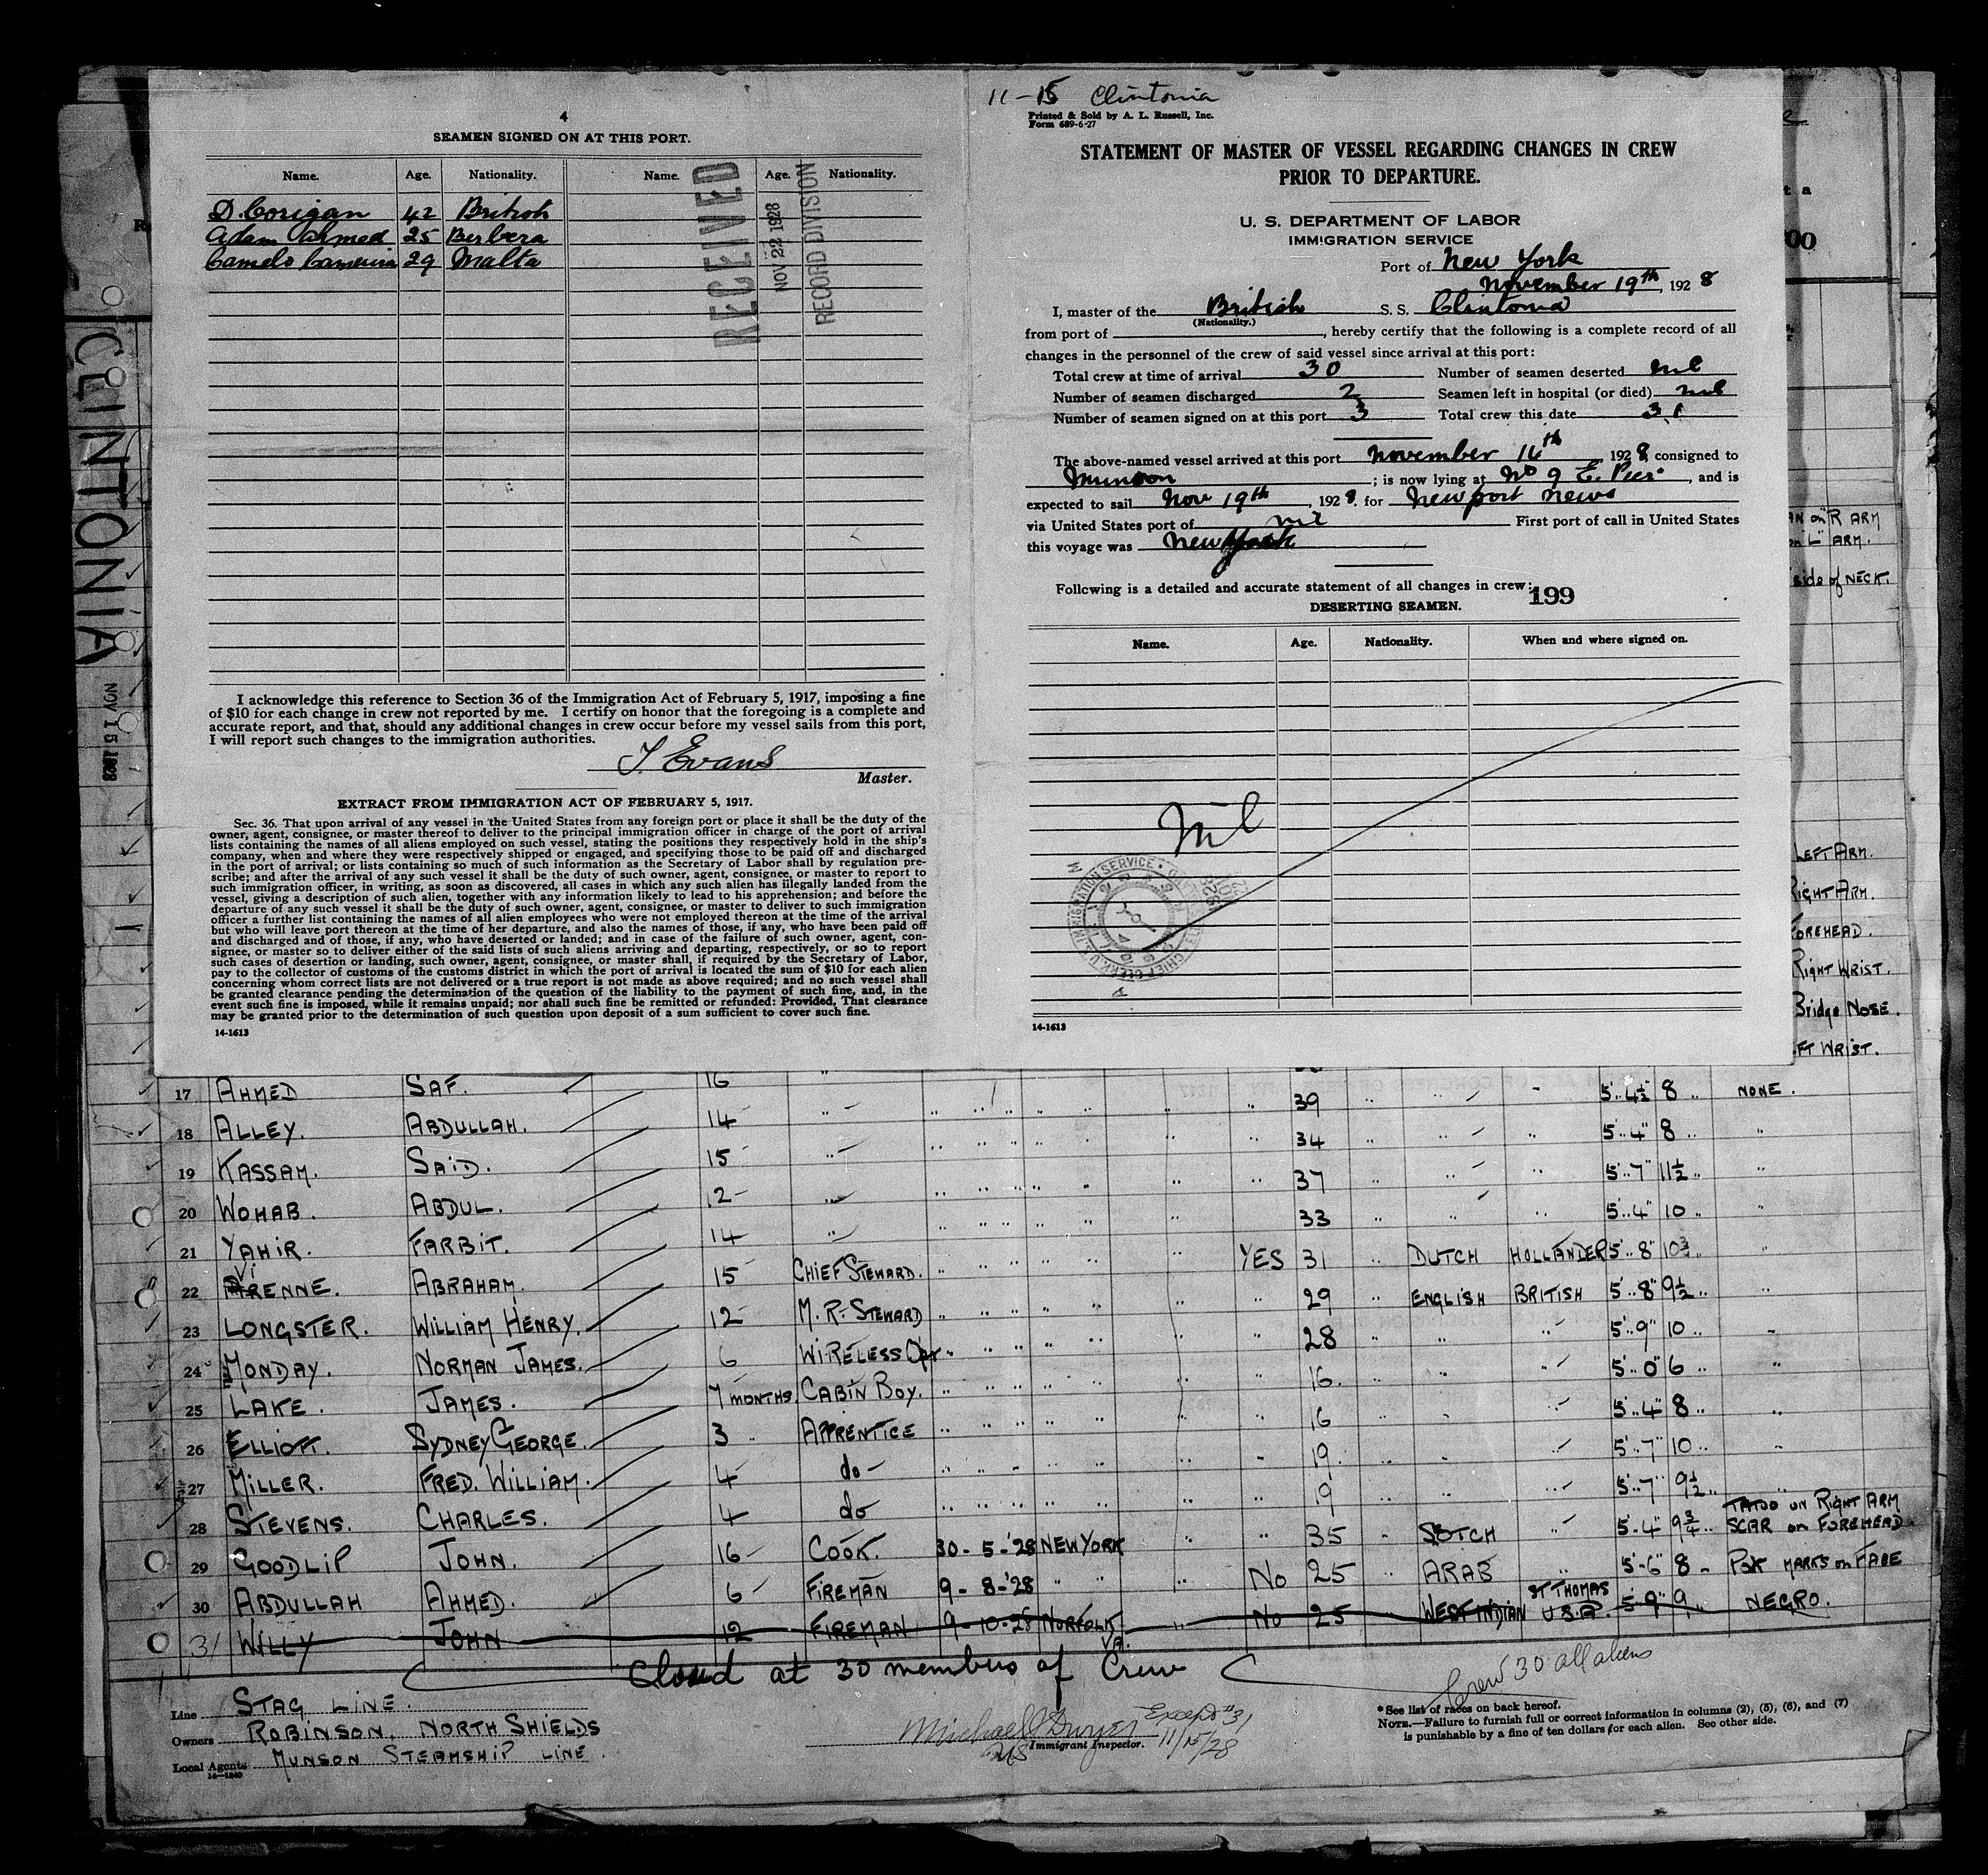 4
SEAMEN SIGNED ON AT THIS PORT.
Name. Age. Nationality. Name. Age. Nationality.
D. Corigan 42 British
Adam Ahmed 25 Berbera
Camelo 29 Malta
RECEIVED
NOV 22 1928
RECORD DIVISION
I acknowledge this reference to Section 36 of the Immigration Act of February 5, 1917, imposing a fine
of $10 for each change in crew not reported by me. I certify on honor that the foregoing is a complete and
accurate report, and that, should any additional changes in crew occur before my vessel sails from this port,
I will report such changes to the immigration authorities.
T. Evans
Master.
EXTRACT FROM IMMIGRATION ACT OF FEBRUARY 5, 1917.
Sec. 36. That upon arrival of any vessel in the United States from any foreign port or place it shall be the duty of the
owner, agent, consignee, or master thereof to deliver to the principal immigration officer in charge of the port of arrival
lists containing the names of all aliens employed on such vessel, stating the positions they respectively hold in the ship's
company, when and where they were respectively shipped or engaged, and specifying those to be paid off and discharged
in the port of arrival; or lists containing so much of such information as the Secretary of Labor shall by regulation pre-
scribe; and after the arrival of any such vessel it shall be the duty of such owner, agent, consignee, or master to report to
such immigration officer, in writing, as soon as discovered, all cases in which any such alien has illegally landed from the
vessel, giving a description of such alien, together with any information likely to lead to his apprehension; and before the
departure of any such vessel it shall be the duty of such owner, agent, consignee, or master to deliver to such immigration
officer a further list containing the names of all alien employees who were not employed thereon at the time of the arrival
but who will leave port thereon at the time of her departure, and also the names of those, if any, who have been paid off
and discharged and of those, if any, who have deserted or landed; and in case of the failure of such owner, agent, con-
signee, or master so to deliver either of the said lists of such aliens arriving and departing, respectively, or so to report
such cases of desertion or landing, such owner, agent, consignee, or master shall, if required by the Secretary of Labor,
pay to the collector of customs of the customs district in which the port of arrival is located the sum of $10 for each alien
concerning whom correct lists are not delivered or a true report is not made as above required; and no such vessel shall
be granted clearance pending the determination of the question of the liability to the payment of such fine, and, in the
event such fine is imposed, while it remains unpaid; nor shall such fine be remitted or refunded: Provided, That clearance
may be granted prior to the determination of such question upon deposit of a sum sufficient to cover such fine.
14-1613
11-15 Clintonia
Printed & Sold by A. L. Russell, Inc.
Form 689-6-27
STATEMENT OF MASTER OF VESSEL REGARDING CHANGES IN CREW
PRIOR TO DEPARTURE.
U. S. DEPARTMENT OF LABOR
IMMIGRATION SERVICE
Port of New York
November 19th, 1928
I, master of the British S. S. Clintonia
(Nationality.)
from port of , hereby certify that the following is a complete record of all
changes in the personnel of the crew of said vessel since arrival at this port:
Total crew at time of arrival 30 Number of seamen deserted nil
Number of seamen discharged 2 Seamen left in hospital (or died) nil
Number of seamen signed on at this port 3 Total crew this date 31
The above-named vessel arrived at this port November 14th, 1928, consigned to
Munson ; is now lying at No 9 E. Pier, and is
expected to sail Nov 19th, 1928. for Newport News
via United States port of nil First port of call in United States
this voyage was New York
Following is a detailed and accurate statement of all changes in crew:
199
DESERTING SEAMEN.
Name. Age. Nationality. When and where signed on.
Nil
14-1613
CLINTONIA
NOV 15 1928
AN on "R ARM
on "L" ARM.
side of NECK.
LEFT ARM.
RIGHT ARM.
FOREHEAD.
RIGHT WRIST.
Bridge NOSE.
FT WRIST.
17 AHMED SAF. 16 " 39 " " - 5'..4½" 8 .. NONE.
18 ALLEY. ABDULLAH. 14 " 34 " " " 5'..4" 8 .. "
19 KASSAM. SAID. 15 " 37 " " " 5'..7" 11½ "
20 WOHAB. ABDUL. 12 " 33 " " " 5'..4" 10 .. "
21 YAHIR. FARBIT. 14 " YES 31 " DUTCH HOLLANDER 5'..8" 10¾ .. "
22 ARENNE. Vi ABRAHAM. 15 CHIEF STEWARD. " 29 " ENGLISH BRITISH 5'..8" 9½ .. "
23 LONGSTER. WILLIAM HENRY. 12 M. R. STEWARD " 28 " " " 5'..9" 10 .. "
24 MONDAY. NORMAN JAMES. 6 WIRELESS Opr. " 16. " " " 5'..0" 6 "
25 LAKE. JAMES. 7 MONTHS. CABIN BOY. " 16 " " " 5'..4" 8 .. "
26 ELLIOTT. SYDNEY GEORGE. 3 .. APPRENTICE " 19. " " " 5'..7" 10 .. "
27 MILLER. FRED. WILLIAM. 4 do " 19 " " " 5'..7" 9½ .. "
28 STEVENS. CHARLES. 4 do " 35 " SCOTCH " 5'-4" 9¾ .. TATOO on RIGHT ARM SCAR on FOREHEAD.
29 GOODLIP JOHN. 16 COOK. 30-5-'28 NEW YORK " No 25 " ARAB " 5'-6" 8 - POK MARKS on FACE
30 ABDULLAH AHMED. 6 FIREMAN 9-8-'28 " "
31 WILLY JOHN 12 FIREMAN 9-10-28 NORFOLK VA. " No 25 WEST INDIAN ST THOMAS U.S.A. 5-9" 9 NEGRO.
Closed at 30 members of Crew
Crew 30 all aliens
Except #31
Line STAG LINE.
Owners ROBINSON, NORTH SHIELDS
Local Agents MUNSON STEAMSHIP LINE.
14-1240
Michael Dwyer 11/15/28
Immigrant Inspector.
*See list of races on back hereof.
NOTE.—Failure to furnish full or correct information in columns (2), (5), (6), and (7)
is punishable by a fine of ten dollars for each alien. See other side.